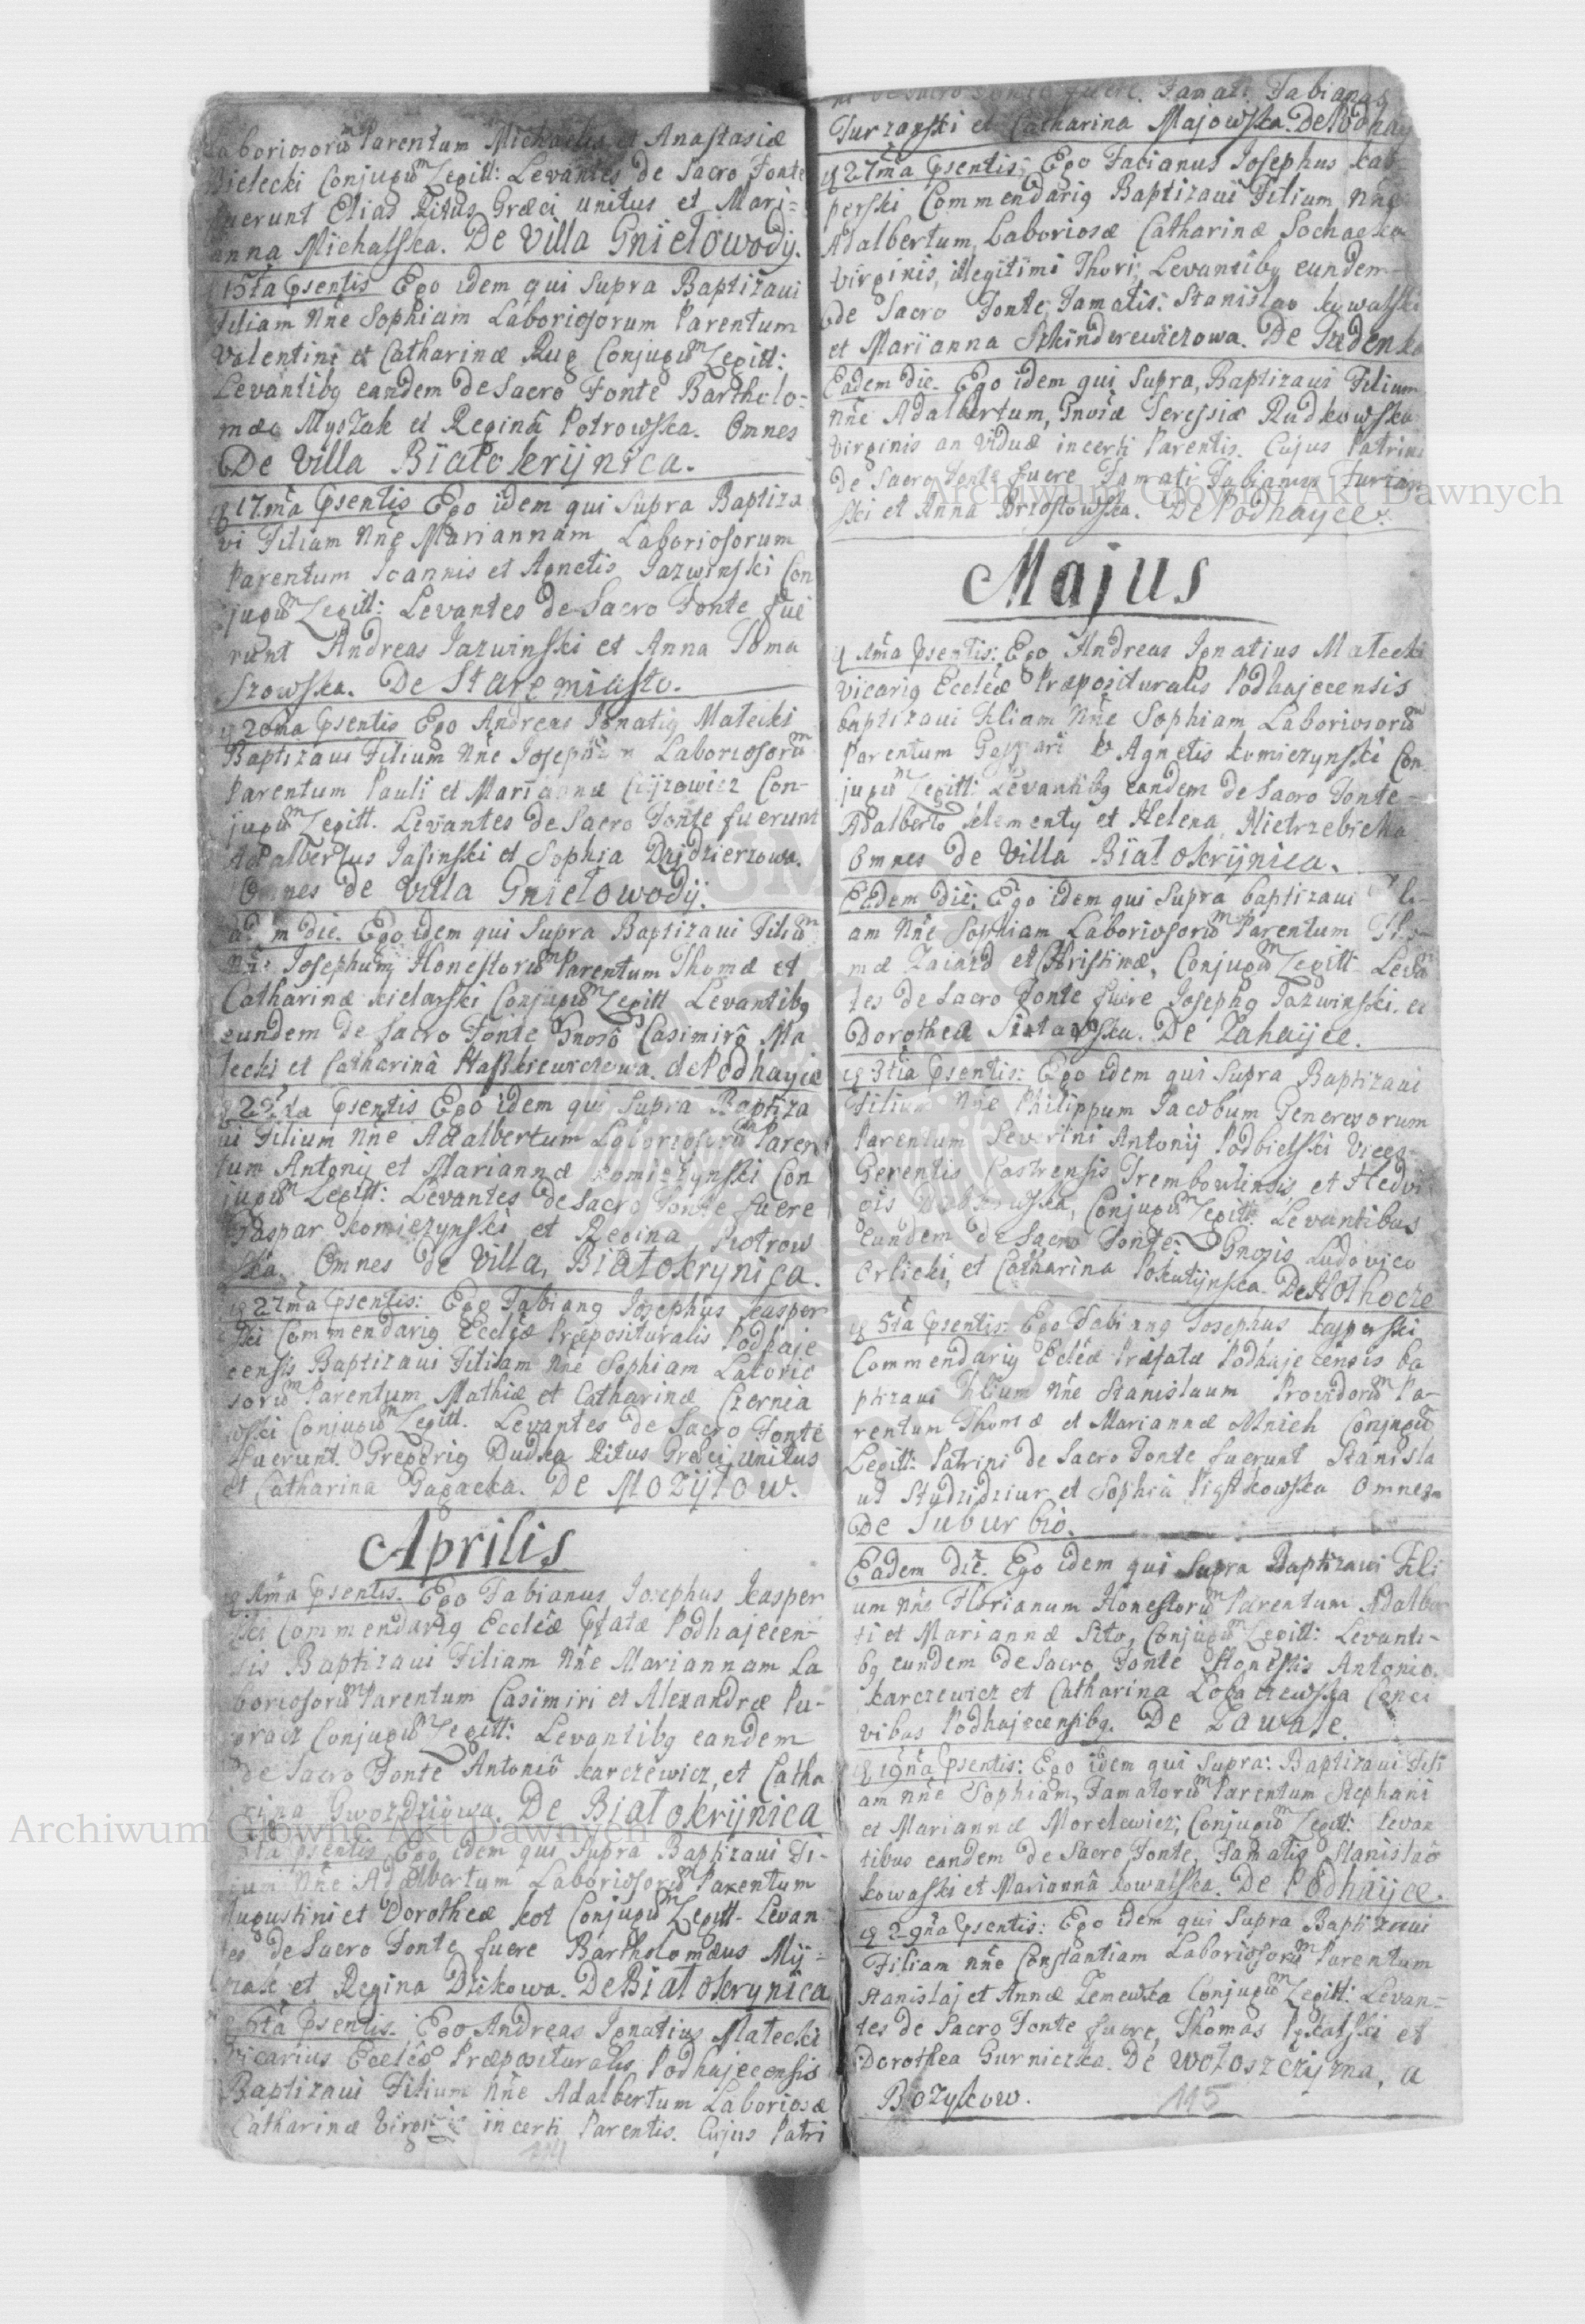 Laboriosorũ Parentum Michaelis et Anastasiæ
Bielecki Conjugũ Legitt: Levantes de Sacro Fonte
fuerunt Elias Ritus Græci unitus et Mari=
anna Michalska. De Villa Gniłowodÿ.
15ta Psentis Ego idem qui Supra Baptizaui
Filiam Nñe Sophiam Laboriosorum Parentum
Valentini et Catharinæ Rug Conjugũ Legitt:
Levantibg eandem de Sacro Fonte Bartholo=
mæo Myszak et Reginâ Potrowska. Omnes
De Villa Białokrÿnica.
17ma Psentis Ego idem qui Supra Baptiza
vi Filiam Nñe Mariannam Laboriosorum
Parentum Ioannis et Agnetis Jazwinski Con
jugũ Legitt: Levantes de Sacro Fonte fue
runt Andreas Jazwinski et Anna Toma
szowska. De Staremiasto.
20ma Psentis Ego Andreas Ignatig Małecki
Baptizaui Filium Nñe Josephum Laboriosorũ
Parentum Pauli et Mariannæ Con-
jugũ Legitt. Levantes de Sacro Fonte fuerunt
Adalbertus Jasinski et Sophia
Omnes de Villa Gniłowodÿ.
die. Ego idem qui Supra Baptizaui Filiũ
Nñe Josephum Honestorũ Parentum Thomæ et
Catharinæ Kielarski Conjugũ Legitt Levantibg
eundem de Sacro Fonte Gnoso Casimirô Ma
łecki et Catharinâ Staszkiewiczowa. de Podhayce
Psentis Ego idem qui Supra Baptiza
ui Filium Nñe Adalbertum Laboriosorũ Paren
tum Antonij et Mariannæ Komiczynski Con
jugũ Legitt: Levantes de Sacro Fonte fuere
Gaspar Komiczynski et Regina Piotrow
ska. Omnes de Villa, Białokrynica.
27ma Psentis: Ego Fabiang Josephus Kasper
ski Commendarig Eccleæ Præposituralis Podhaje
censis Baptizaui Filiam Nñe Sophiam Laborio
sorũ Parentum Mathiæ et Catharinæ Czernia
wski Conjugũ Legitt. Levantes de Sacro Fonte
fuerunt. Gregorig Dudka Ritus Græci unitus
et Catharina Gagacka. De Mozÿłow.
Aprilis
1ma Psentis. Ego Fabianus Josephus Kasper
ski Commendarig Eccleæ Pfatæ Podhajecen-
sis Baptizaui Filiam Nñe Mariannam La
boriosorũ Parentum Casimiri et Alexandræ Pu-
Conjugũ Legitt: Levantibg eandem
de Sacro Fonte Antoniô Karczewicz, et Catha
rina Gwozdziowa. De Białokrÿnica
Psentis Ego idem qui Supra Baptizaui Fi-
lium Nñe Adalbertum Laboriosorũ Parentum
Augustini et Dorotheæ Kot Conjugũ Legitt- Levan
tes de Sacro Fonte fuere Bartholomæus Mÿ=
szak et Regina Dzikowa. De Białokrynica
6ta Psentis. Ego Andreas Ignatius Małecki
Vicarius Eccleæ Præposituralis Podhajecensis
Baptizaui Filium Nñe Adalbertum Laboriosæ
Catharinæ Virginis incerti Parentis. Cujus Patri
114
ni de Sacro Fonte fuere. Famati Fabianus
Turzanski et Catharina Majowska. De Podhay
27ma Psentis; Ego Facianus Josephus Kas-
perski Commendarig Baptizaui Filium Nñe
Adalbertum, Laboriosæ Catharinæ Sochacka
Virginis, illegitimi Thori; Levantibg eundem
de Sacro Fonte, Famatis: Stanislao Kowalski
et Marianna Szkinderewiczowa. De
Eadem die. Ego idem qui Supra, Baptizaui Filium
Nñe Adalbertum, Gnosæ Teressiæ Rudkowska
Virginis an Viduæ incerti Parentis. Cujus Patrini
de Sacro Fonte fuere Famati Fabianus Turzan
ski et Anna Brzostowska. De Podhayce.
Majus
1ma Psentis: Ego Andreas Ignatius Małecki
Vicarig Eccleæ Præposituralis Podhajecensis
baptizaui Filiam Nñe Sophiam Laboriosorũ
Parentum Gaspari & Agnetis Komiczynski Con
jugũ Legitt: Levantibg eandem de Sacro Fonte
Adalberto Klementy et Helena, Nietrzebicka
Omnes de Villa Białokrÿnica.
Eadem die: Ego idem qui Supra baptizaui Fili-
am Nñe Sophiam Laboriosorũ Parentum Tho-
mæ Zaiazd et Christinæ, Conjugũ Legitt- Levã
tes de Sacro Fonte fuere Josephg Jazwinski. et
Dorothea De Zahaÿce.
3tia Psentis: Ego idem qui Supra Baptizaui
Filium Nñe Philippum Jacobum Generosorum
Parentum Severini Antonij Podbielski Vices-
Gerentis Castrensis Trembowlinsis, et Hedvi
gis Conjugũ Legitt: Levantibus
eundem de Sacro Fonte. Gnosis Ludovico
Orlicki, et Catharina Pokutÿnska. De Hołhocze
5ta Psentis: Ego Fabiang Josephus Kasperski
Commendarig Ecleæ Præfatæ Podhajecensis ba
ptizaui Filium Nñe Stanislaum Providorũ Pa-
rentum Thomæ et Mariannæ Mnich Conjugũ
Legitt: Patrini de Sacro Fonte fuerunt Stanisla
us Stydzidziur et Sophia Piątkowska Omnes
De Suburbio.
Eadem Die. Ego idem qui Supra Baptizaui Fili
um Nñe Florianum Honestorũ Parentum Adalber
ti et Mariannæ Sito, Conjugũ Legitt: Levanti-
bg eundem de Sacro Fonte Honestis Antonio
Karczewicz et Catharina Łogaczewska Conci
vibus Podhajecensibg. De Zawale.
19na Psentis: Ego idem qui Supra: Baptizaui Fili
am Nñe Sophiam, Famatorũ Parentum Stephani
et Mariannæ Morelewicz; Conjugũ Legitt: Levan
tibus eandem de Sacro Fonte, Famatig Stanislaô
Kowalski et Mariannâ Kowalska. De Podhaÿce.
29na Psentis: Ego idem qui Supra Baptizaui
Filiam Nñe Constantiam Laboriosorũ Parentum
Stanislaj et Annæ Zemewka Conjugũ Legitt: Levan-
tes de Sacro Fonte fuere, Thomas Pękalski et
Dorothea Gurniczka. De Wołoszczÿzna, a
Bozykow.
115
Archiwum Główne Akt Dawnych
Archiwum Główne Akt Dawnych